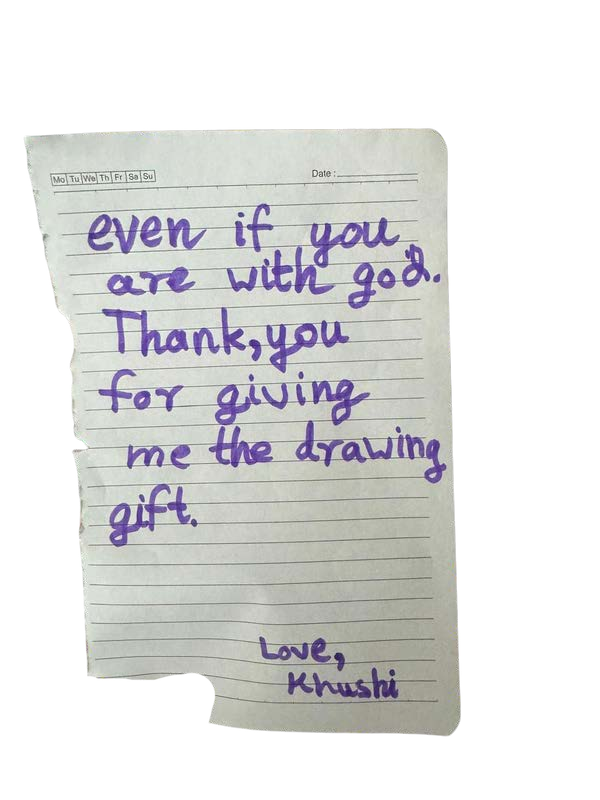 Mo Tu We Th Fr Sa Su Date :
even if you
are with god.
Thank, you
for giving
me the drawing
gift.
Love,
Khushi